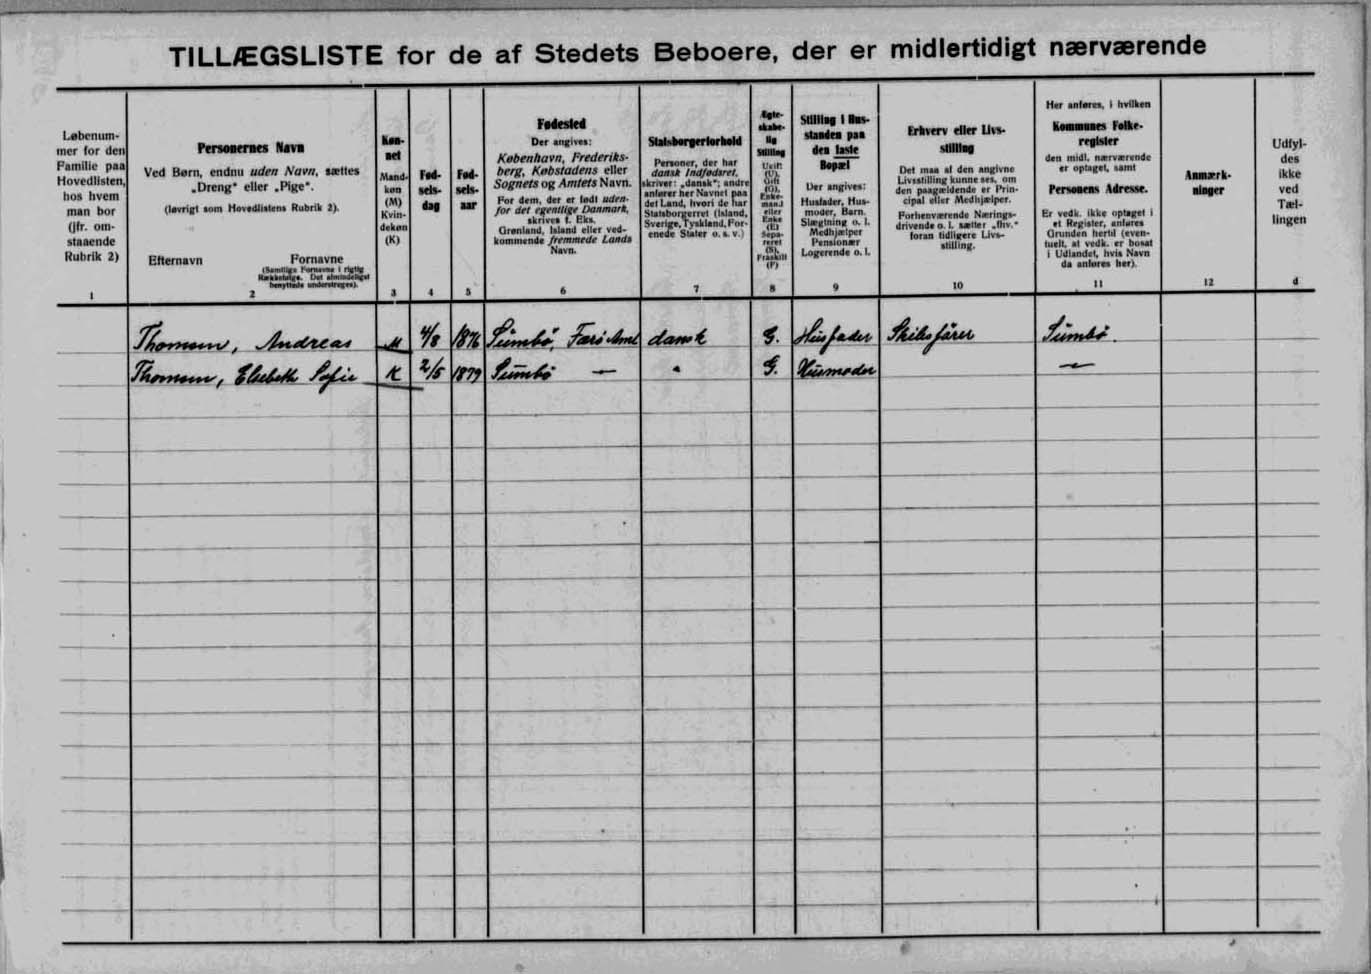 TILLÆGSLISTE for de af Stedets Beboere, der er midlertidigt nærværende
Løbenum-
mer for den
Familie paa
Hovedlisten,
hos hvem
man bor
(jfr. om-
staaende
Rubrik 2)
1
Personernes Navn
Ved Børn, endnu uden Navn, sættes
„Dreng“ eller „Pige“.
(Iøvrigt som Hovedlistens Rubrik 2).
Efternavn
Fornavne
(Samtlige Fornavne i rigtig
Rækkefølge. Det almindeligst
benyttede understreges).
2
Køn-
net
Mand-
køn
(M)
Kvin-
dekøn
(K)
3
Fød-
sels-
dag
4
Fød-
sels-
aar
5
Fødested
Der angives:
København, Frederiks-
berg, Købstadens eller
Sognets og Amtets Navn.
For dem, der er født uden-
for det egentlige Danmark,
skrives f. Eks.
Grønland, Island eller ved-
kommende fremmede Lands
Navn.
6
Statsborgerforhold
Personer, der har
dansk Indfødsret,
skriver: „dansk“; andre
anfører her Navnet paa
det Land, hvori de har
Statsborgerret (Island,
Sverige, Tyskland, For-
enede Stater o. s. v.)
7
Ægte-
skabe-
lig
Stilling
Ugift
(U),
Gift
(G),
Enke-
mand
eller
Enke
(E)
Sepa-
reret
(S),
Fraskilt
(F)
8
Stilling i Hus-
standen paa
den faste
Bopæl
Der angives:
Husfader, Hus-
moder, Barn.
Slægtning o. l.
Medhjælper
Pensionær
Logerende o. l.
9
Erhverv eller Livs-
stilling
Det maa af den angivne
Livsstilling kunne ses, om
den paagældende er Prin-
cipal eller Medhjælper.
Forhenværende Nærings-
drivende o. l. sætter „fhv.“
foran tidligere Livs-
stilling.
10
Her anføres, i hvilken
Kommunes Folke-
register
den midl. nærværende
er optaget, samt
Personens Adresse.
Er vedk. ikke optaget i
et Register, anføres
Grunden hertil (even-
tuelt, at vedk. er bosat
i Udlandet, hvis Navn
da anføres her).
11
Anmærk-
ninger
12
Udfyl-
des
ikke
ved
Tæl-
lingen
d
Thomsen, Andreas M 4/8 1876 Sumbø, Færø Amt dansk G. Husfader Skibsfører Sumbø.
Thomsen, Elsebeth Sofie K 2/5 1879 Sumbø — " G. Husmoder —